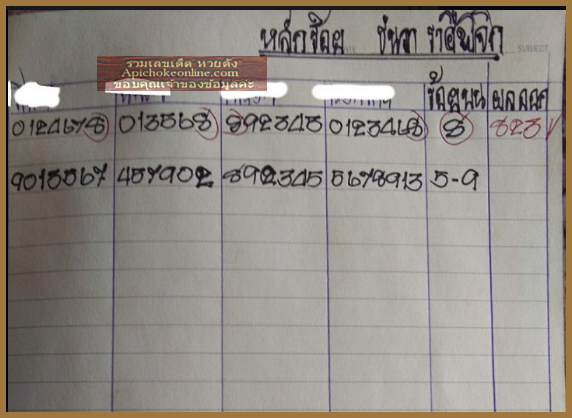 หลักร้อย ชนวา ราศีพิจิก
DATE SUBJECT
รวมเลขเด็ด หวยดัง
Apichokeonline.com
ขอบคุณเจ้าของข้อมูลค่ะ
ร้อยบน ผลออก
0124678 013568 892345 0123468 8 823 ✓
9013567 457902 892345 5678913 5-9